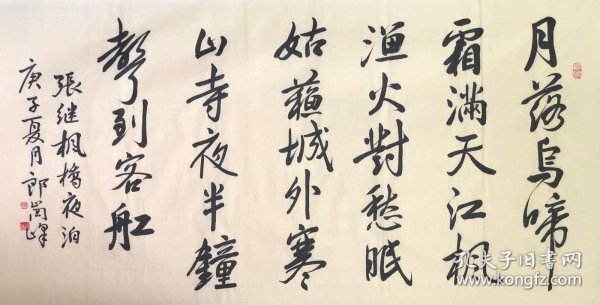 月落烏啼
霜滿天江楓
漁火對愁眠
姑蘇城外寒
山寺夜半鐘
聲到客船
張继楓橋夜泊
庚子夏月郎崗峰
孔夫子旧书网
www.kongfz.com